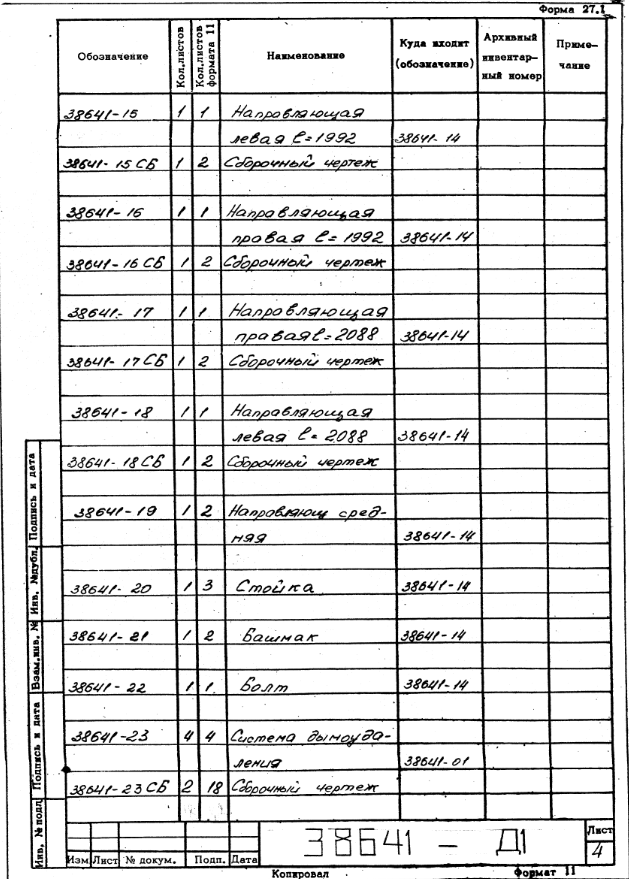 Форма 27.1
Обозначение Кол.листов Кол.листов формата 11 Наименование Куда входит (обозначение) Архивный инвентарный номер Примечание
38641-15 1 1 Направляющая
левая ℓ=1992 38641-14
38641-15 СБ 1 2 Сборочный чертеж
38641-16 1 1 Направляющая
правая ℓ=1992 38641-14
38641-16 СБ 1 2 Сборочный чертеж
38641-17 1 1 Направляющая
правая ℓ=2088 38641-14
38641-17 СБ 1 2 Сборочный чертеж
38641-18 1 1 Направляющая
левая ℓ=2088 38641-14
38641-18 СБ 1 2 Сборочный чертеж
38641-19 1 2 Направляющ сред-
няя 38641-14
38641-20 1 3 Стойка 38641-14
38641-21 1 2 Башмак 38641-14
38641-22 1 1 Болт 38641-14
38641-23 4 4 Система дымоуда-
ления 38641-01
38641-23 СБ 2 18 Сборочный чертеж
Инв. № подл. Подпись и дата Взам.инв. № Инв. №дубл. Подпись и дата
38641 - Д1
Лист
4
Изм Лист № докум. Подп. Дата
Копировал Формат 11